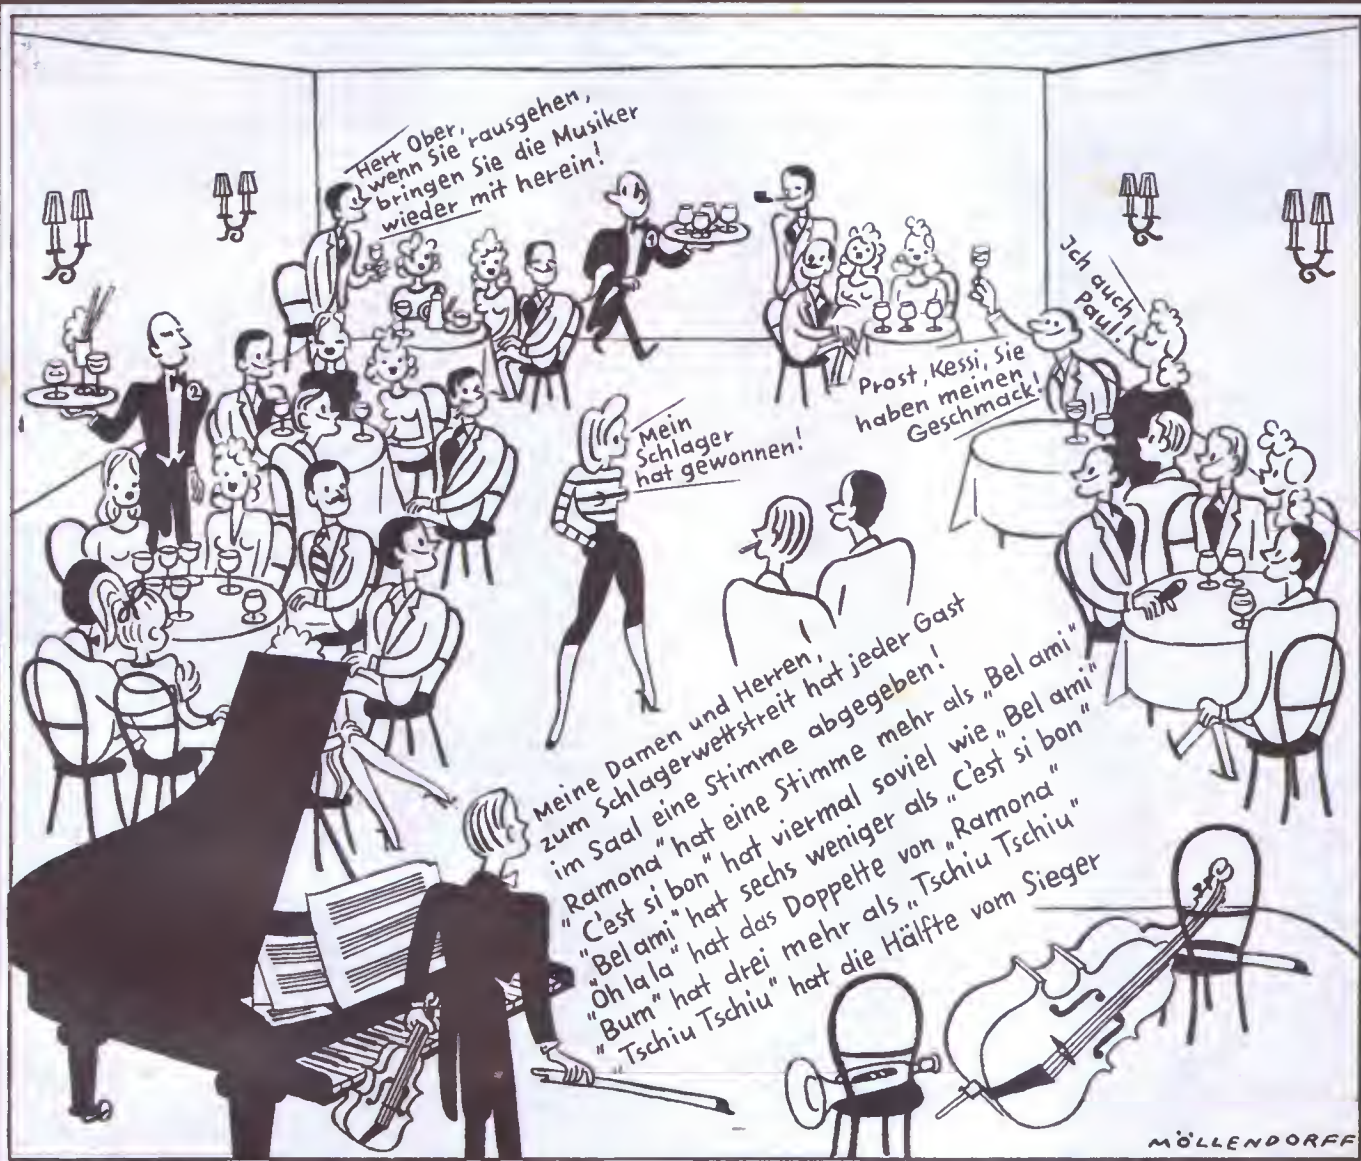 Herr Ober,
wenn Sie rausgehen,
bringen Sie die Musiker
wieder mit herein!
1
Ich auch
Paul!
2
Prost, Kessi, Sie
haben meinen
Geschmack!
Mein
Schlager
hat gewonnen!
Meine Damen und Herren,
zum Schlagerwettstreit hat jeder Gast
im Saal eine Stimme abgegeben!
"Ramona" hat eine Stimme mehr als „Bel ami"
"C'est si bon" hat viermal soviel wie „Bel ami"
"Bel ami" hat sechs weniger als „C'est si bon"
"Oh la la" hat das Doppelte von „Ramona"
"Bum" hat drei mehr als „Tschiu Tschiu"
„Tschiu Tschiu" hat die Hälfte vom Sieger
MÖLLENDORFF